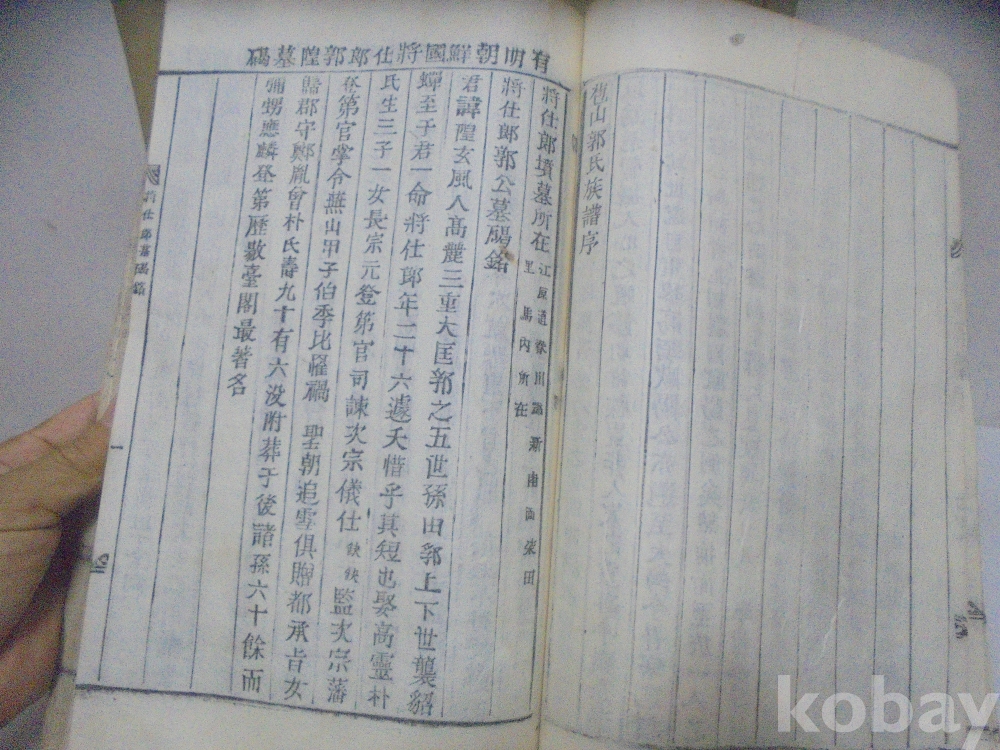 苞山郭氏族譜序
有明朝鮮國將仕郎郭隍墓碣
將仕郎墳墓所在
江原道春川郡新南面柒田
里馬內所在
將仕郎郭公墓碣銘
君諱隍玄風人高麗三重大匡郭之五世孫田郭上下世襲貂
蟬至于君一命將仕郎年二十六遽夭惜乎其短也娶高靈朴
氏生三子一女長宗元登第官司諫次宗儀仕缺缺監次宗藩
登第官寧令燕山甲子伯季比罹禍 聖朝追雪俱贈都承旨女
歸郡守鄭胤曾朴氏壽九十有六沒附葬于後諸孫六十餘而
彌甥應麟登第歷敭臺閣最著名
將仕郎墓碣銘
一
kobay